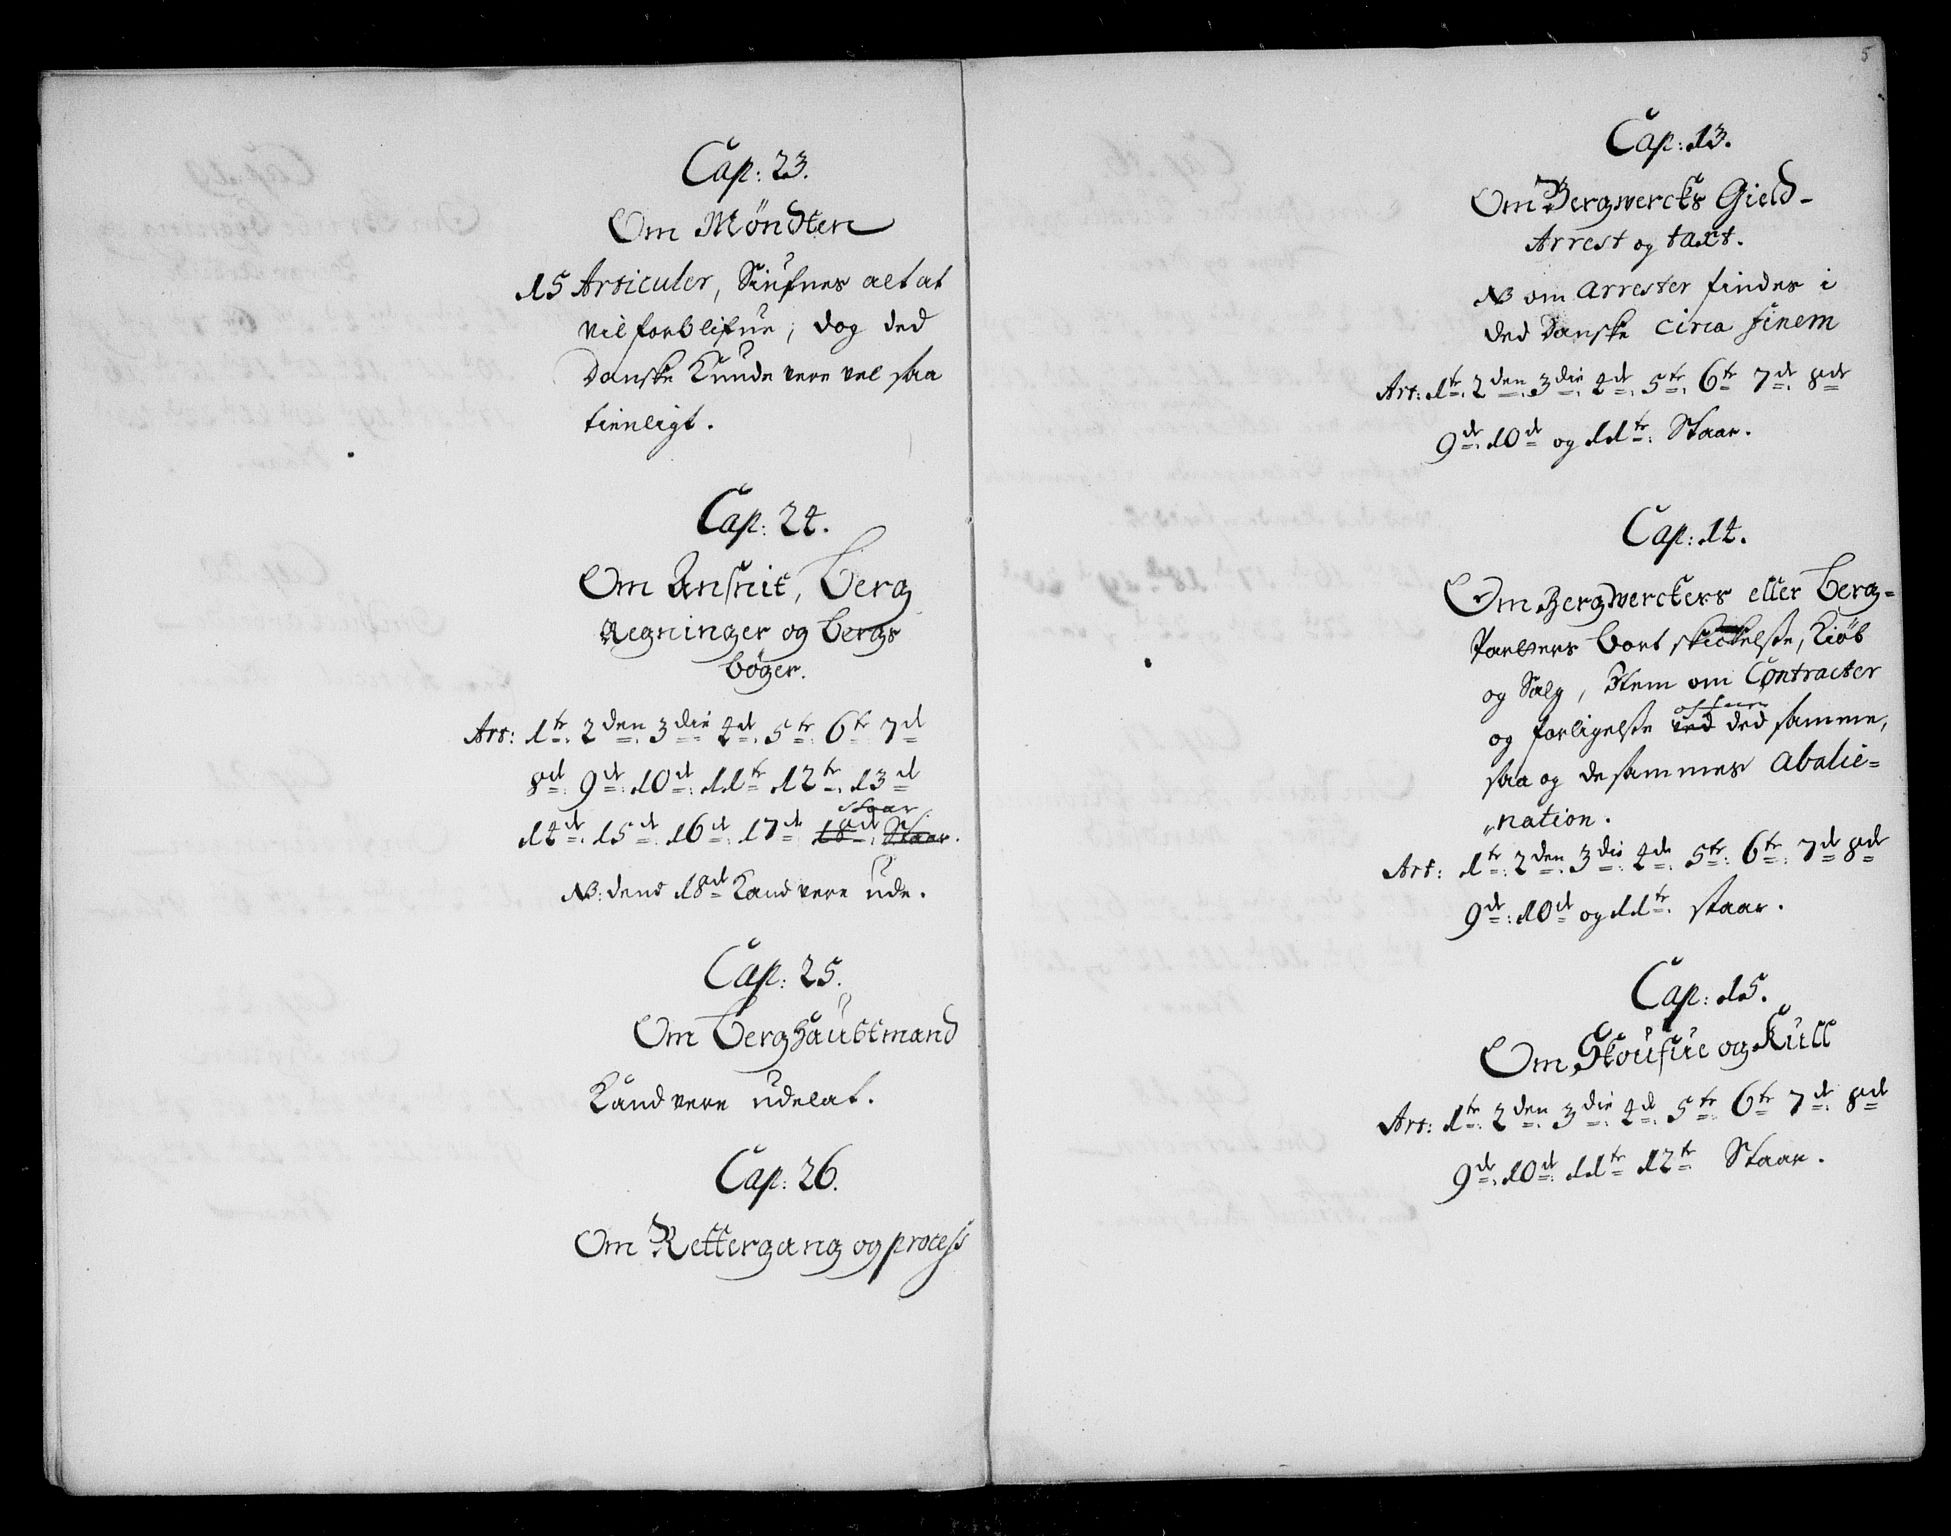 Cap: 23.
Om Möndten
15 Articuler, Siufnes alt at
vil forblifue, dog ded
Danske Kunde vere vel saa
tienligt.
Cap: 24.
Om Ansnit, berg
Regninger og bergs
bøger.
Art: 1tr. 2den. 3die 4d. 5tr. 6tr 7d
8d. 9d. 10d. 11tr 12tr. 13d
staar
14d. 15d. 16d. 17d. 18d. Staar.
NB: dend 18d Kand vere ude.
Cap: 25.
Om berghaubtmand
Kand vere udelat.
Cap: 26.
Om Rettergang og process
5
Cap: 13.
Om Bergwercks Gield-
Arrest og taxt.
NB om arrester findes i
ded Danske circa finem
Art: 1tr. 2den. 3die 4d. 5tr. 6tr 7d 8d
9d. 10d og 11tr. Staar.
Cap: 14.
Om Bergwerckers eller berg-
Parters bort skickelse, Kiøb
og Salg, Item om Contracter
og forligelse ved ded samme,
saa og de sammes abalie=
nation.
Art: 1tr. 2den. 3die. 4de 5tr. 6tr. 7d 8d
9d. 10d og 11tr. staar.
Cap: 15.
Om Skoufue og Kull
Art: 1tr. 2den 3die. 4d 5tr. 6tr 7d. 8d
9d. 10d. 11tr 12tr Staar.